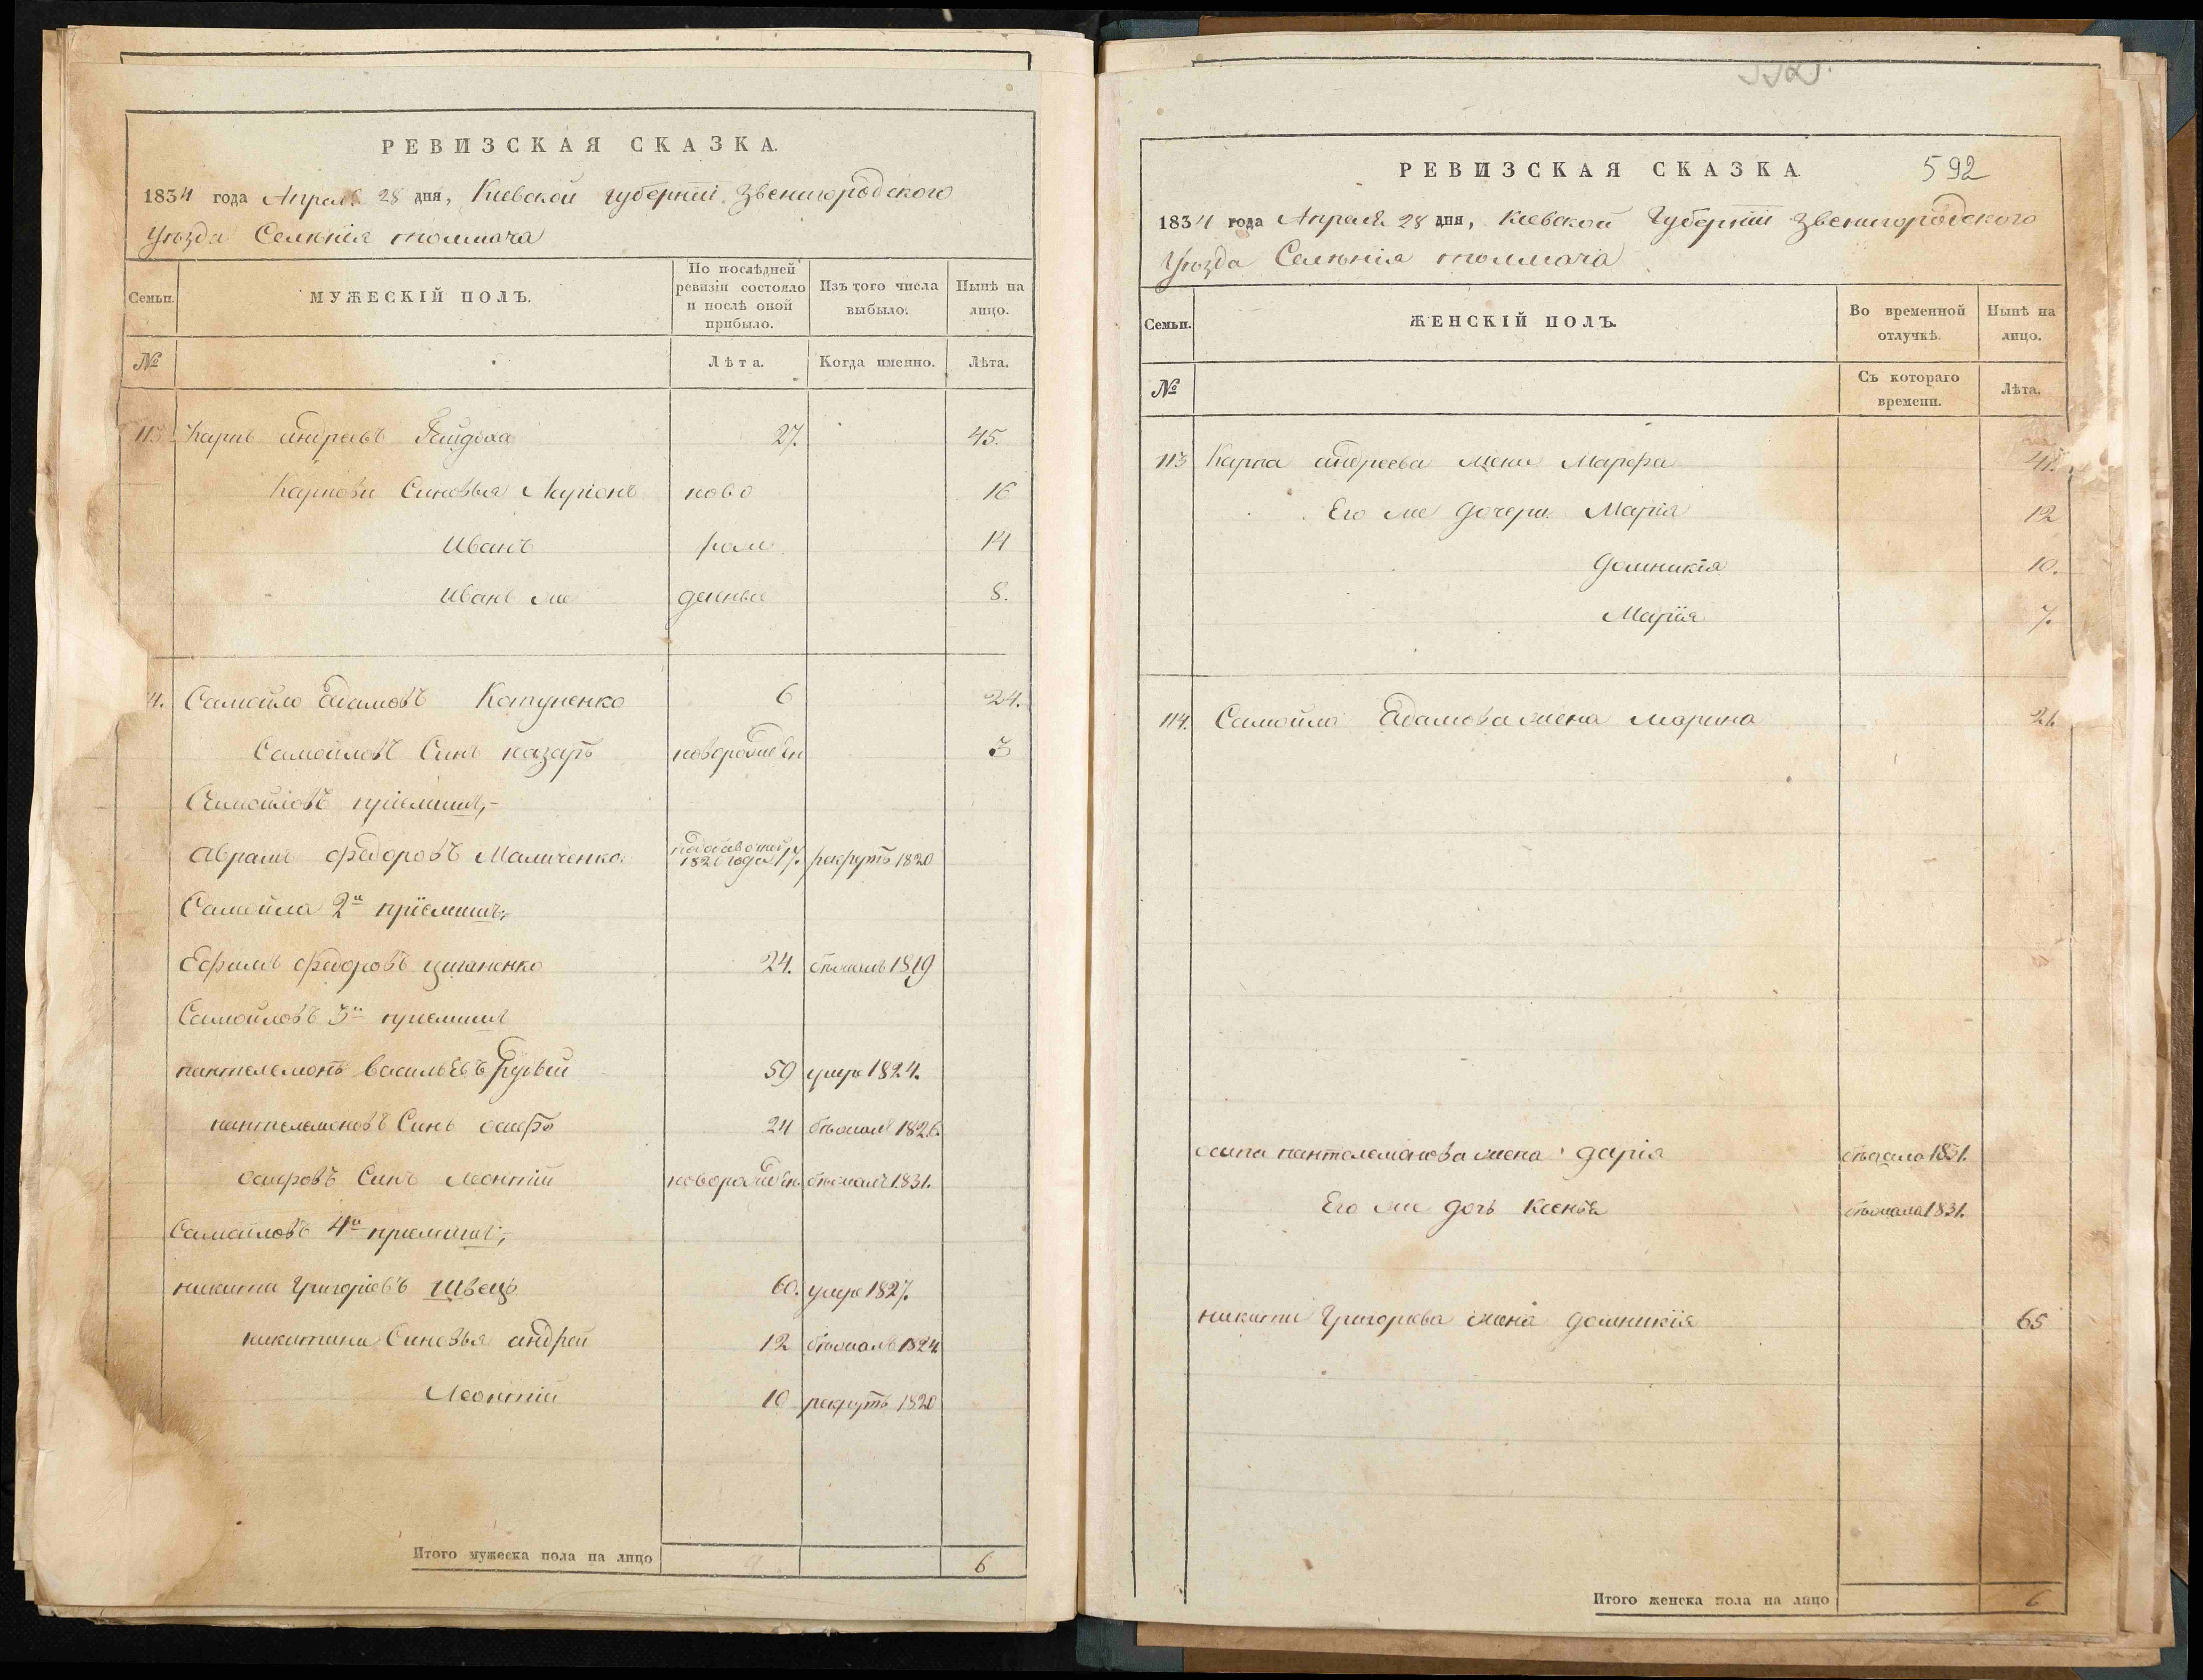 РЕВИЗСКАЯ СКАЗКА.
1834 года Апреля 28 дня, Киевской губерніи Звенигородского
Уезда Селенія толмача
Семьи.
МУЖЕСКІЙ ПОЛЪ.
По послѣдней ревизіи состояло и послѣ оной прибыло.
Изъ того числа выбыло.
Нынѣ на лицо.
№
Лѣта.
Когда именно.
Лѣта.
113 Карпъ андреевъ 27. 45.
Карпови Синовья Ларіонъ ново 16
Иванъ рож 14
Иванъ же денны 8.
4. Самойло Адамовъ Катуненко 6 24.
Самойловъ Синъ назаръ новорожден 3
Самойловъ пріемишъ,-
Аврамъ федоровъ Маличенко 1820 года 17. рекрутъ 1820
Самойла 2й пріемишъ;
Ефимъ федоровъ циганенко 24. бежалъ 1819
Самойловъ 3й пріемишъ
пантелемонъ васильевъ 59 умре 1824.
пантелемоновъ Синъ осипъ 24 бежалъ 1826.
осиповъ Синъ Леонтій новорожден. бежалъ 1831.
Самойловъ 4й пріемишъ;
никита Григоріевъ Швецъ 60. умре 1827.
никитини Синовья андрей 12 бежалъ 1824
Леонтій 10 рекрутъ 1820
Итого мужеска пола на лицо 6
592
РЕВИЗСКАЯ СКАЗКА.
1834 года Апреля 28 дня, Киевской Губерніи Звенигородского
Уезда Селенія толмача
Семьи.
ЖЕНСКІЙ ПОЛЪ.
Во временной отлучкѣ.
Нынѣ на лицо.
№
Съ котораго времени.
Лѣта.
113 Карпа андреева жена Марфа 41.
Его же дочери Марія 12
Домникія 10.
Марія 7.
114. Самойла Адамова жена марина 21.
осипа пантелемонова жена дарія бежала 1831.
Его же дочь Ксенья бежала 1831.
никити Григорева жена домникія 65
Итого женска пола на лицо 6